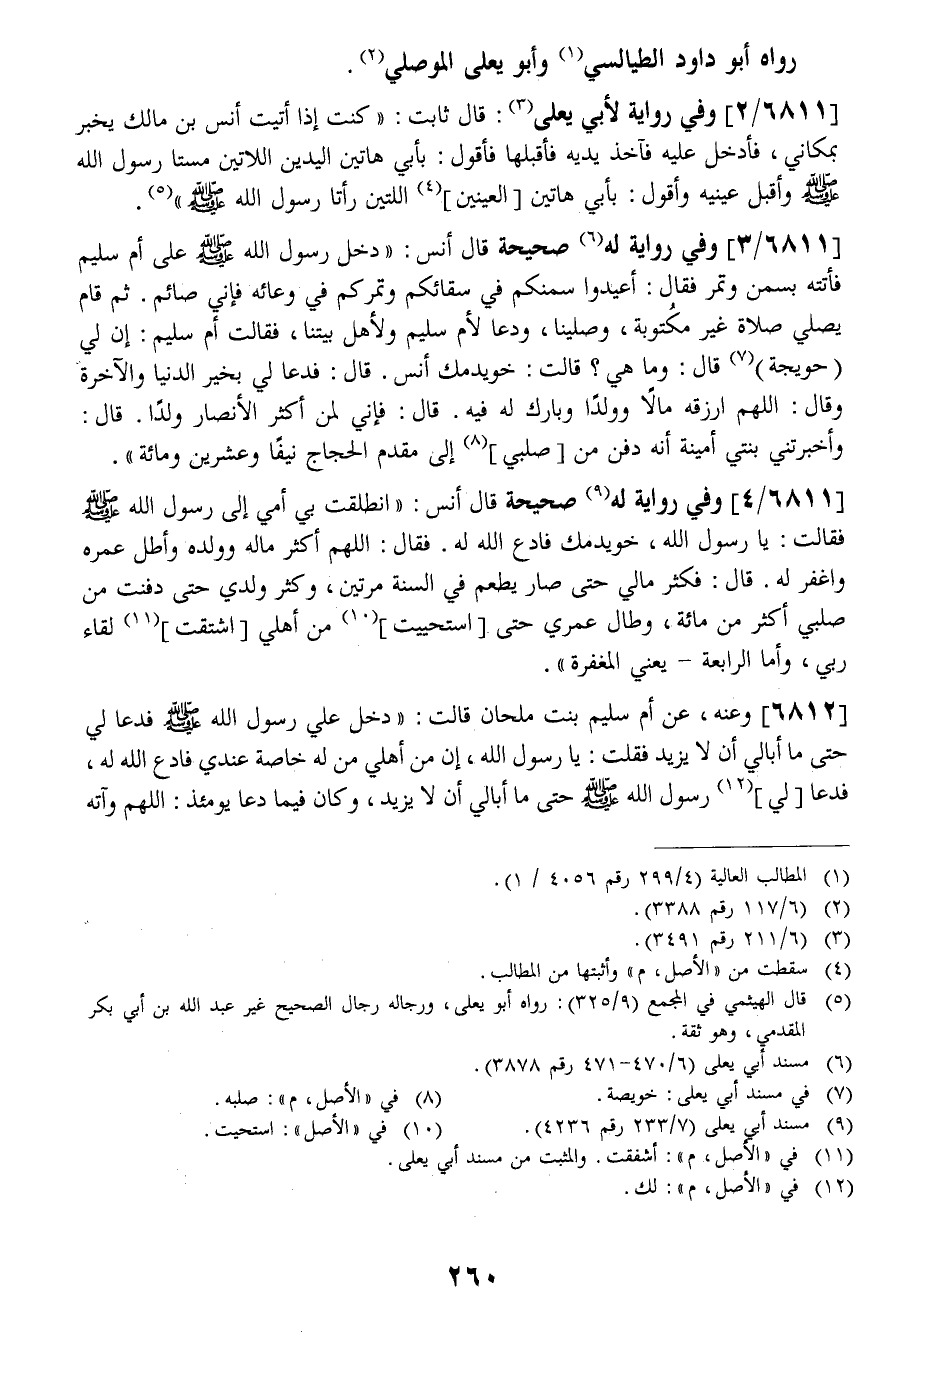 رواه أبو داود الطيالسي(١) وأبو يعلى الموصلي(٢) .
[٢/٦٨١١] وفي رواية لأبي يعلى(٣) : قال ثابت : « كنت إذا أتيت أنس بن مالك يخبر
بمكاني ، فأدخل عليه فآخذ يديه فأقبلها فأقول : بأبي هاتين اليدين اللاتين مستا رسول الله
ﷺ وأقبل عينيه وأقول : بأبي هاتين [ العينين ](٤) اللتين رأتا رسول الله ﷺ »(٥) .
[٣/٦٨١١] وفي رواية له(٦) صحيحة قال أنس : « دخل رسول الله ﷺ على أم سليم
فأتته بسمن وتمر فقال : أعيدوا سمنكم في سقائكم وتمركم في وعائه فإني صائم . ثم قام
يصلي صلاة غير مكتوبة ، وصلينا ، ودعا لأم سليم ولأهل بيتنا ، فقالت أم سليم : إن لي
( حويجة )(٧) قال : وما هي ؟ قالت : خويدمك أنس . قال : فدعا لي بخير الدنيا والآخرة
وقال : اللهم ارزقه مالًا وولدًا وبارك له فيه . قال : فإني لمن أكثر الأنصار ولدًا . قال :
وأخبرتني بنتي أمينة أنه دفن من [ صلبي ](٨) إلى مقدم الحجاج نيفًا وعشرين ومائة » .
[٤/٦٨١١] وفي رواية له(٩) صحيحة قال أنس : « انطلقت بي أمي إلى رسول الله ﷺ
فقالت : يا رسول الله ، خويدمك فادع الله له . فقال : اللهم أكثر ماله وولده وأطل عمره
واغفر له . قال : فكثر مالي حتى صار يطعم في السنة مرتين ، وكثر ولدي حتى دفنت من
صلبي أكثر من مائة ، وطال عمري حتى [ استحييت ](١٠) من أهلي [ اشتقت ](١١) لقاء
ربي ، وأما الرابعة - يعني المغفرة » .
[٦٨١٢] وعنه ، عن أم سليم بنت ملحان قالت : « دخل علي رسول الله ﷺ فدعا لي
حتى ما أبالي أن لا يزيد فقلت : يا رسول الله ، إن من أهلي من له خاصة عندي فادع الله له ،
فدعا [ لي ](١٢) رسول الله ﷺ حتى ما أبالي أن لا يزيد ، وكان فيما دعا يومئذ : اللهم وآته
(١) المطالب العالية (٢٩٩/٤ رقم ٤٠٥٦ / ١).
(٢) (١١٧/٦ رقم ٣٣٨٨).
(٣) (٢١١/٦ رقم ٣٤٩١).
(٤) سقطت من «الأصل، م» وأثبتها من المطالب .
(٥) قال الهيثمي في المجمع (٣٢٥/٩): رواه أبو يعلى ، ورجاله رجال الصحيح غير عبد الله بن أبي بكر
المقدمي ، وهو ثقة .
(٦) مسند أبي يعلى (٤٧٠/٦-٤٧١ رقم ٣٨٧٨).
(٧) في مسند أبي يعلى : خويصة . (٨) في «الأصل، م» : صلبه .
(٩) مسند أبي يعلى (٢٣٣/٧ رقم ٤٢٣٦). (١٠) في «الأصل» : استحيت .
(١١) في «الأصل، م» : أشفقت . والمثبت من مسند أبي يعلى .
(١٢) في «الأصل، م» : لك .
٢٦٠